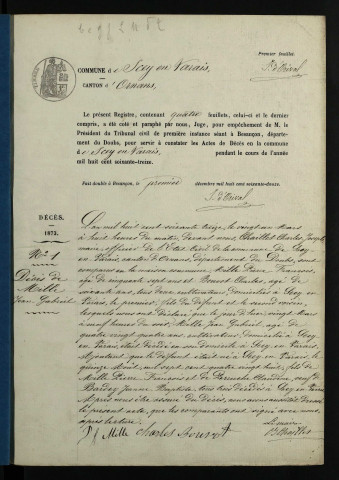 Premier feuillet.
COMMUNE de Scey en Varais,
CANTON d'Ornans.
Le présent Registre, contenant quatre feuillets, celui-ci et le dernier
compris, a été coté et paraphé par nous, Juge, pour empêchement de M. le
Président du Tribunal civil de première instance séant à Besançon, départe-
ment du Doubs, pour servir à constater les Actes de Décès en la commune
de Scey en Varais, pendant le cours de l'année
mil huit cent soixante-treize.
Fait double à Besançon, le premier décembre mil huit cent soixante-douze.
DÉCÈS.
1873.
N° 1
Décès de
Mille
Jean Gabriel
L'an mil huit cent soixante treize le vingt un mars
à huit heures du matin devant nous Chaillet Charles Joseph
maire, officier de l'Etat Civil de la commune de Scey
en Varais, canton d'Ornans, département du Doubs, sont
comparus en la maison commune, Mille Pierre François,
âgé de cinquante sept ans et Bouvet Charles, âgé de
ans, domiciliés à Scey en
Varais, le premier, fils du défunt et le second voisin,
lesquels nous ont déclaré que le jour d'hier vingt mars
à neuf heures du soir, Mille Jean Gabriel, âgé de
quatre vingt quatre ans, domicilié à Scey
en Varais, était décédé en son domicile à Scey en Varais.
Ajoutant que le défunt était né à Scey en Varais, le
quinze Août mil sept cent quatre vingt huit, fils de
Mille Pierre François et de Claudine, veuf de
Jeanne Baptiste, tous décédés à Scey en Varais.
Après nous être assuré du décès, nous avons dressé
le présent acte, que les comparants ont signé avec nous,
après lecture.
Le maire
P F Mille Charles Bouvet